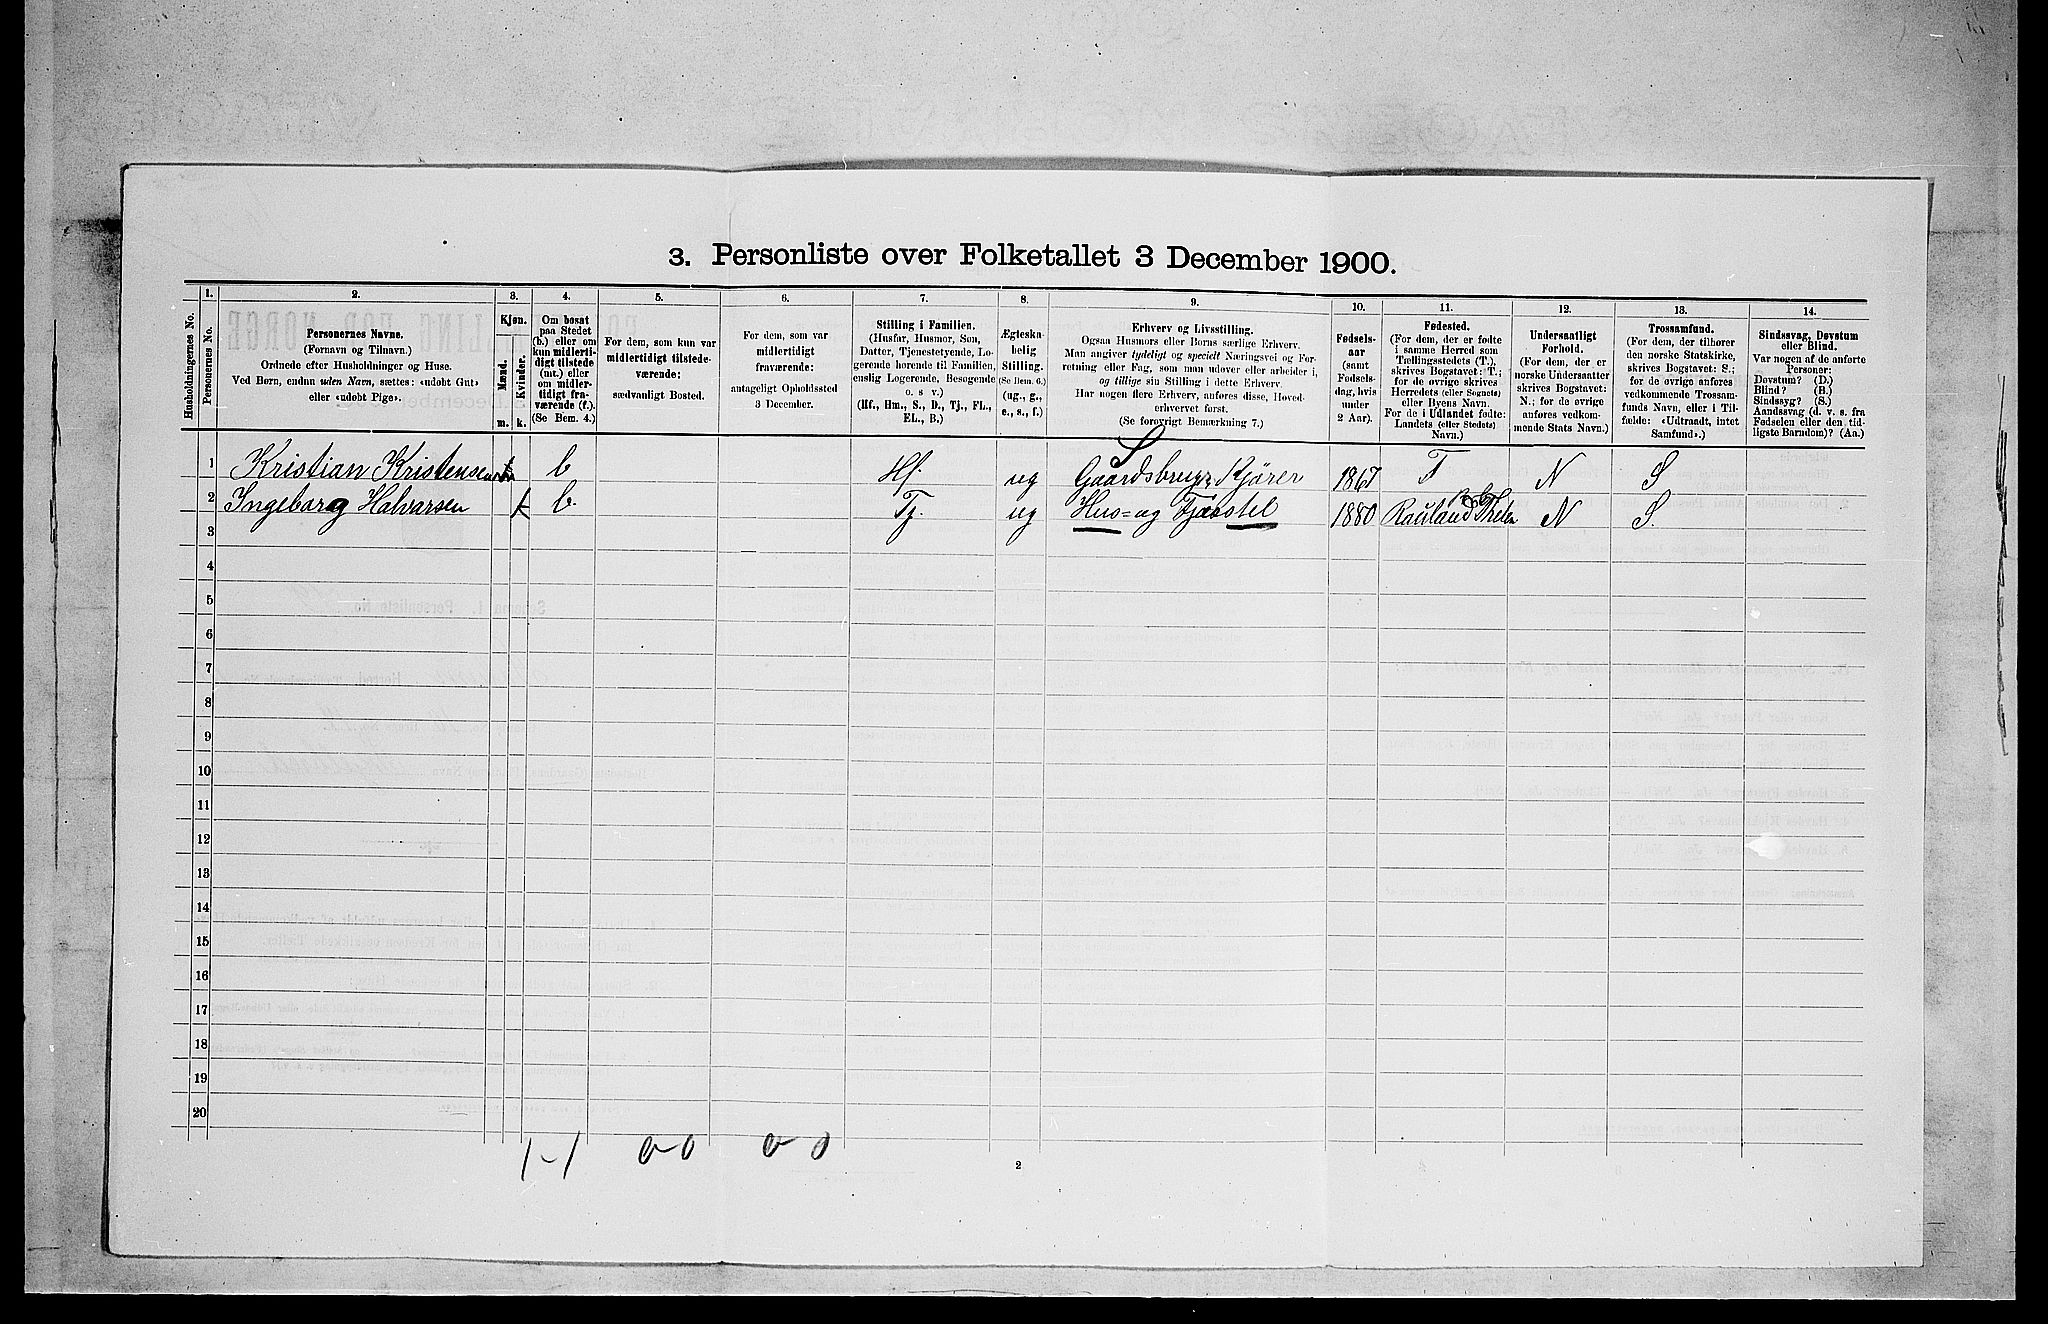 3. Personliste over Folketallet 3 December 1900.
1. 2. 3. 4. 5. 6. 7. 8. 9. 10. 11. 12. 13. 14.
Husholdningernes No.
Personernes No.
Personernes Navne.
(Fornavn og Tilnavn.)
Ordnede efter Husholdninger og Huse.
Ved Børn, endnu uden Navn, sættes: «udøbt Gut»
eller «udøbt Pige».
Kjøn.
Mænd.
Kvinder.
m. k.
Om bosat
paa Stedet
(b.) eller om
kun midlerti-
digt tilstede
(mt.) eller
om midler-
tidigt fra-
værende (f.).
(Se Bem. 4.)
For dem, som kun var
midlertidigt tilstede-
værende:
sædvanligt Bosted.
For dem, som var
midlertidigt
fraværende:
antageligt Opholdssted
3 December.
Stilling i Familien.
(Husfar, Husmor, Søn,
Datter, Tjenestetyende, Lo-
gerende hørende til Familien,
enslig Logerende, Besøgende
o. s v.)
(Hf., Hm., S., D., Tj., FL.,
EL., B.)
Ægteska-
belig
Stilling.
(Se Bem. 6.)
(ug., g.,
e., s., f.)
Erhverv og Livsstilling.
Ogsaa Husmors eller Børns særlige Erhverv.
Man angiver tydeligt og specielt Næringsvei og For-
retning eller Fag, som man udøver eller arbeider i,
og tillige sin Stilling i dette Erhverv.
Har nogen flere Erhverv, anføres disse, Hoved-
erhvervet først.
(Se forøvrigt Bemærkning 7.)
Fødsels-
aar
(samt
Fødsels-
dag, hvis
under
2 Aar).
Fødested.
(For dem, der er fødte
i samme Herred som
Tællingsstedets (T.),
skrives Bogstavet: T.;
for de øvrige skrives
Herredets (eller Sognets)
eller Byens Navn.
For de i Udlandet fødte:
Landets (eller Stedets)
Navn.)
Undersaatligt
Forhold.
(For dem, der er
norske Undersaatter
skrives Bogstavet:
N.; for de øvrige
anføres vedkom-
mende Stats Navn.)
Trossamfund.
(For dem, der tilhører
den norske Statskirke,
skrives Bogstavet: S.;
for de øvrige anføres
vedkommende Trossam-
funds Navn, eller i Til-
fælde: «Udtraadt, intet
Samfund».)
Sindssvag, Døvstum
eller Blind.
Var nogen af de anførte
Personer:
Døvstum? (D.)
Blind? (B.)
Sindssyg? (S.)
Aandssvag (d. v. s. fra
Fødselen eller den tid-
ligste Barndom)? (Aa.)
1 Kristian Kristensen b Hf. ug S Gaardsbruger Kjører 1867 T N S
2 Ingeborg Halvorsen k b. Tj. ug Hus= og Fjøsstel 1880 Rauland Thelen N S.
3
4
5
6
7
8
9
10
11
12
13
14
15
16
17
18
19
20
1-1 0-0 0-0
2